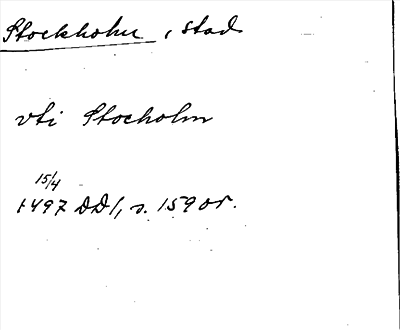 Stockholm, stad
vti Stocholm
15/4
1497 DD1, s. 159 or.